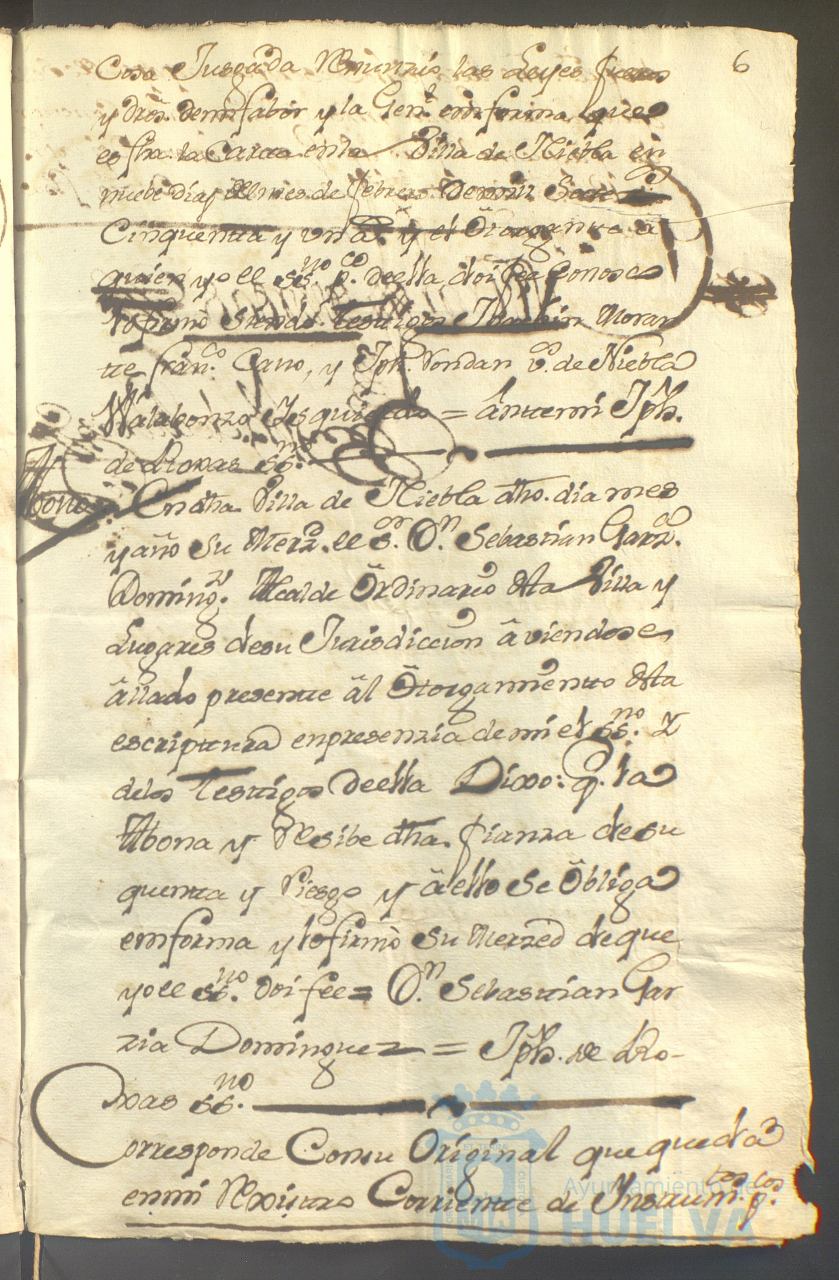 6
Cosa Jusgada Renunzio las Leyes fueros
y dros. demi fabor y la Genl. enforma que
es fha. la Carta enla Villa de Niebla en
nuebe dias del mes de febrero de mill Setez.
Cinquenta y un a. y el Ôtorgante â
quien yo el ssno. pco. deella doi fee Conosco
lofirmó siendo testigos Joachin Moran
te franco. Cano, y Jph. Roldan vo. de Niebla
Walabonzo Isquierdo = ântemi Jph.
de Roxas ssno.
Abono
En dha. Villa de Niebla dho. dia mes
y año su Merzd. el sor. Dn. Sebastian Garza.
Domingz. Alcalde Ôrdinario desta Villa y
Lugares desu Jurisdiccion âviendose
âllado presente âl Ôtorgamiento desta
escriptura enpresenzia de mi el ssno. I
delos testigos deella Dixo: q. la
Abona y Resibe dha. fianza desu
quenta y Riesgo y âello se Ôbliga
enforma y lofirmó su Merzed de que
yo el ssno. doi fee = Dn. Sebastian Gar
zia Dominguez = Jph. de Ro-
xas ssno.
Corresponde Consu Original que queda
enmi Rexistro Corriente de Instrumtos. pcos.
Ayuntamiento de
HUELVA